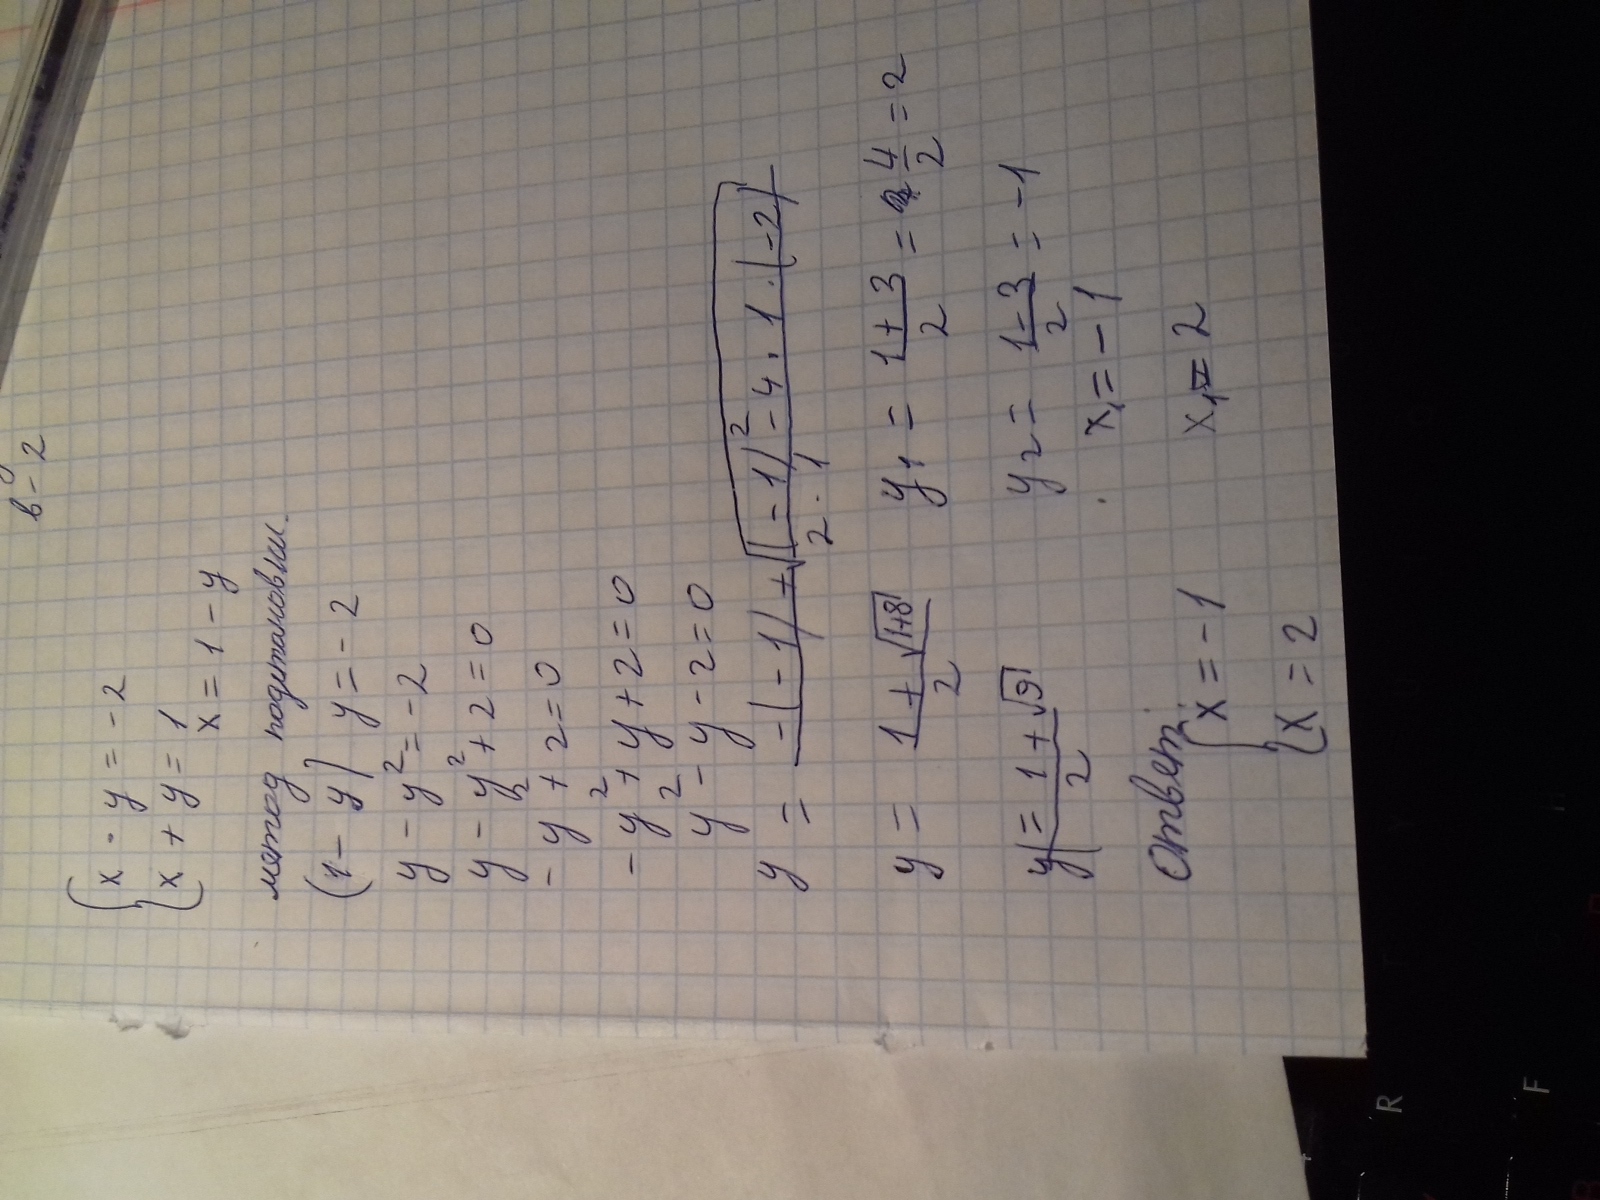 в - 2
x · y = - 2
x + y = 1
x = 1 - y
метод подстановки
(1 - y) y = - 2
y - y² = - 2
y - y² + 2 = 0
- y² + 2 = 0
- y² + y + 2 = 0
y² - y - 2 = 0
y = -(-1) + √(-1)² - 4 · 1 · (-2) / 2 · 1
y = 1 + √1+8 / 2
y₁ = 1 + 3 / 2 = 4 / 2 = 2
y = 1 + √9 / 2
y₂ = 1 - 3 / 2 = - 1
x₁ = - 1
Ответ:
x = - 1
x₁ = 2
x = 2
R
F